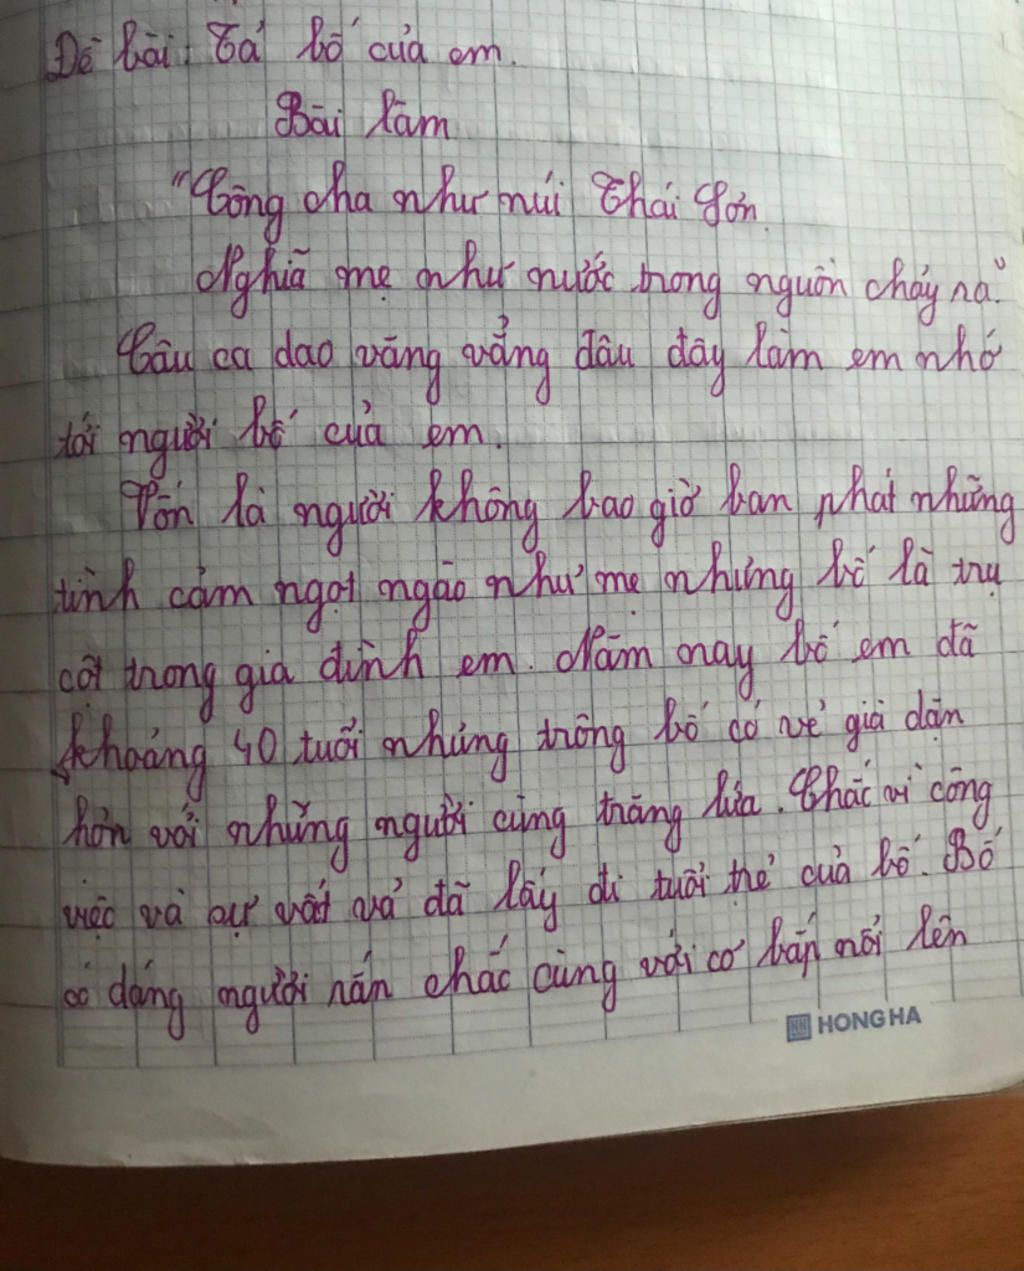 Đề bài: Tả bố của em.
Bài làm
"Công cha như núi Thái Sơn
Nghĩa mẹ như nước trong nguồn chảy ra."
Câu ca dao văng vẳng đâu đây làm em nhớ
tới người bố của em.
Vốn là người không bao giờ ban phát những
tình cảm ngọt ngào như mẹ nhưng bố là trụ
cột trong gia đình em. Năm nay bố em đã
khoảng 40 tuổi nhưng trông bố có vẻ già dặn
hơn với những người cùng trang lứa. Chắc vì công
việc và sự vất vả đã lấy đi tuổi trẻ của bố. Bố
có dáng người rắn chắc cùng với cơ bắp nổi lên
HONG HA